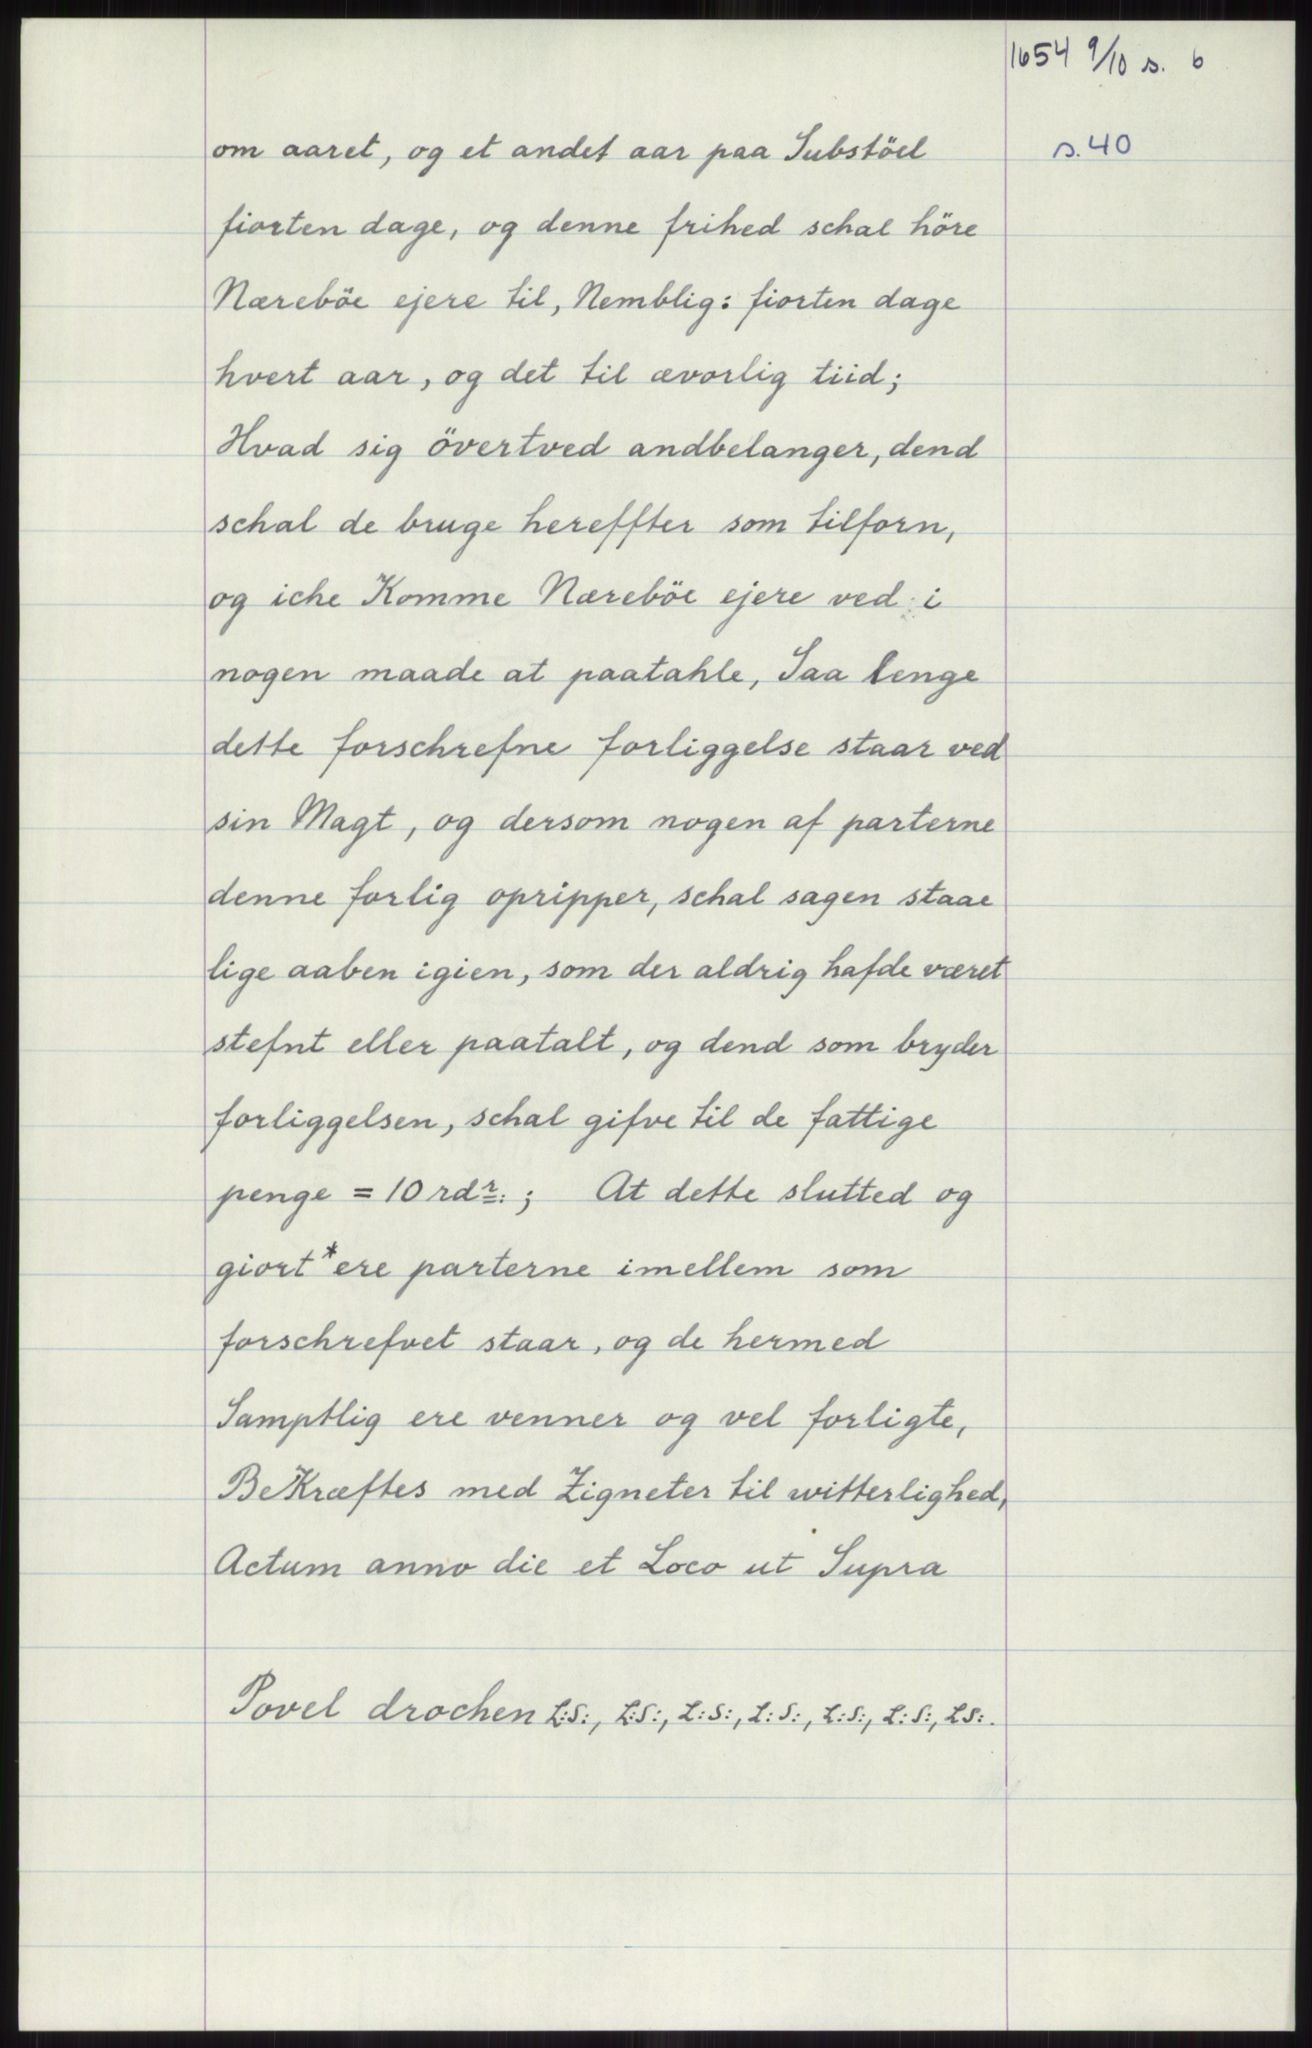 1654 9/10 s. 6
s. 40
om aaret, og et andet aar paa Substöel
fiorten dage, og denne frihed schal höre
Næreböe ejere til, Nemblig: fiorten dage
hvert aar, og det til ævorlig tiid;
Hvad sig övertved andbelanger, dend
schal de bruge hereffter som tilforn,
og iche Komme Næreböe ejere ved i
nogen maade at paatahle, Saa lenge
dette forschrefne forliggelse staar ved
sin Magt, og dersom nogen af parterne
denne forlig opripper, schal sagen staae
lige aaben igien, som der aldrig hafde været
stefnt eller paatalt, og dend som bryder
forliggelsen, schal gifve til de fattige
penge = 10 rdr:; At dette slutted og
giort* ere parterne imellem som
forschrefvet staar, og de hermed
Samptlig ere venner og vel forligte,
BeKræftes med Zigneter til witterlighed,
Actum anno die et Loco ut Supra
Povel drochen L:S:, L:S:, L:S:, L:S:, L:S:, L:S:, LS:.